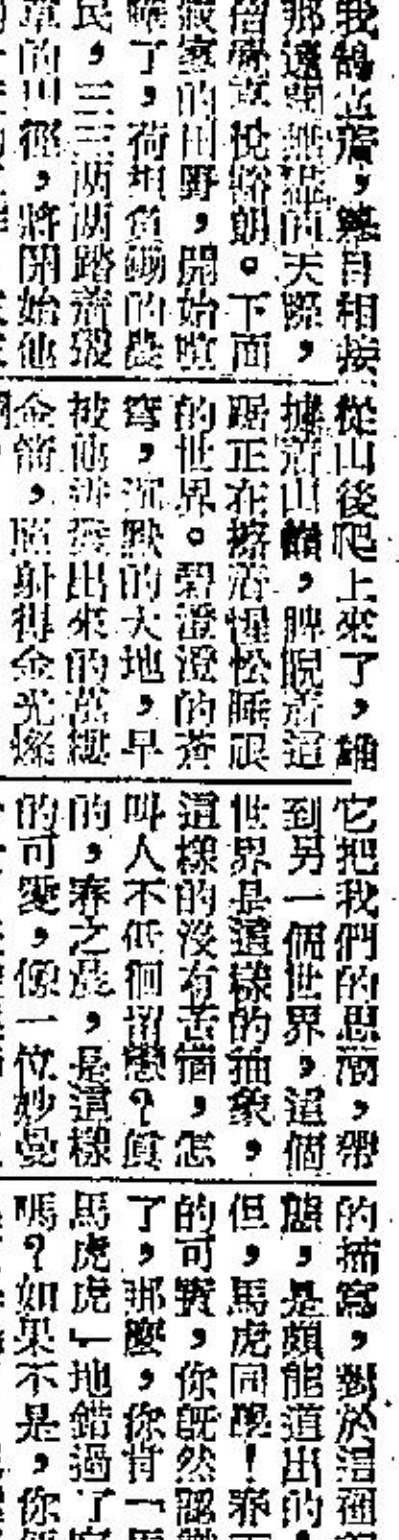 我鵠立着，舉目相接
那遼闊無際的天際，
倍覺豁朗。下面
的田野，開始
了，荷担負鋤的農
民，三三兩兩踏着
的田徑，將開始他
從山後爬上來了，雄
據着山巔，睥睨着這
踞正在擦着惺忪睡眼
的世界。碧澄澄的蒼
穹，沉默的大地，早
被他迸發出來的萬縷
金箭，照射得金光燦
它把我們的思潮，帶
到另一個世界，這個
世界是這樣的抽象，
這樣的沒有苦惱，怎
叫人不低徊留戀？真
的，春之晨，是這樣
的可愛，像一位妙曼
的描寫，對於這種
態，是頗能道出的
但，馬虎同學！春
的可贊，你既然認
了，那麼，你肯「馬
馬虎虎」地錯過了
嗎？如果不是，你